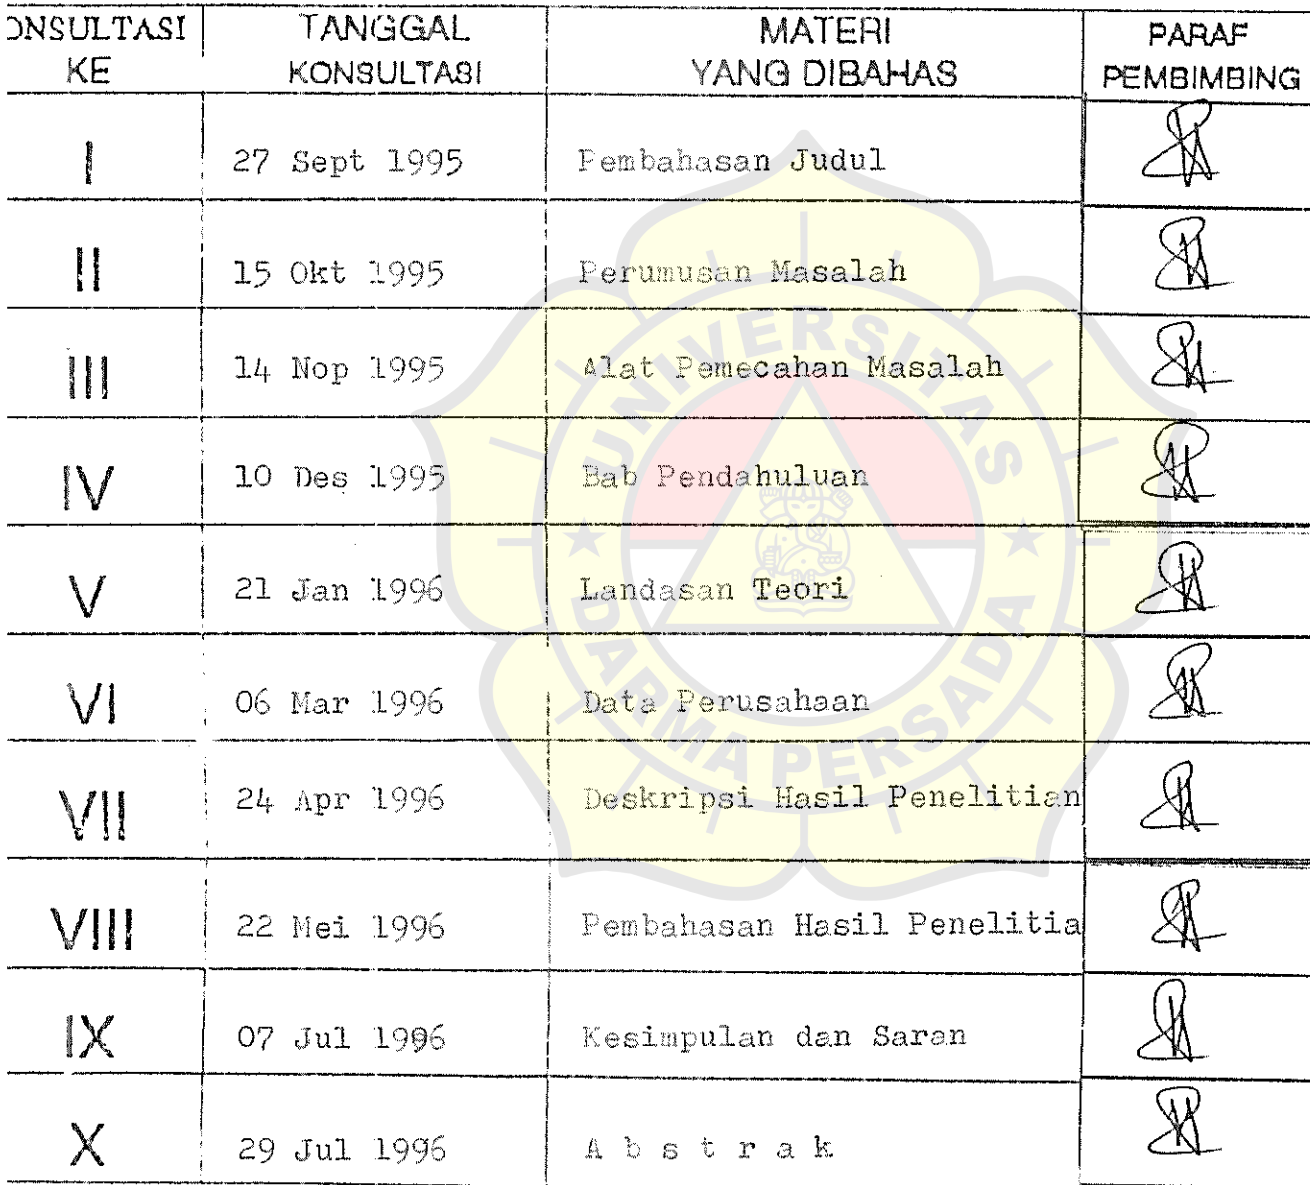 ONSULTASI TANGGAL MATERI PARAF
KE KONSULTASI YANG DIBAHAS PEMBIMBING
I 27 Sept 1995 Pembahasan Judul
II 15 Okt 1995 Perumusan Masalah
III 14 Nop 1995 Alat Pemecahan Masalah
IV 10 Des 1995 Bab Pendahuluan
V 21 Jan 1996 Landasan Teori
VI 06 Mar 1996 Data Perusahaan
VII 24 Apr 1996 Deskripsi Hasil Penelitian
VIII 22 Mei 1996 Pembahasan Hasil Penelitia
IX 07 Jul 1996 Kesimpulan dan Saran
X 29 Jul 1996 A b s t r a k
UNIVERSITAS
DARMA PERSADA